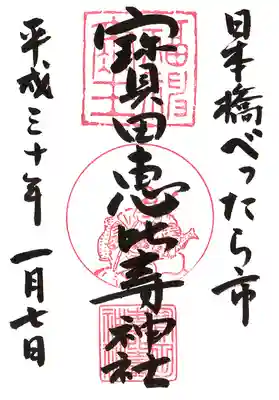 日本橋べったら市
寶田恵比寿神社
平成三十年 一月七日